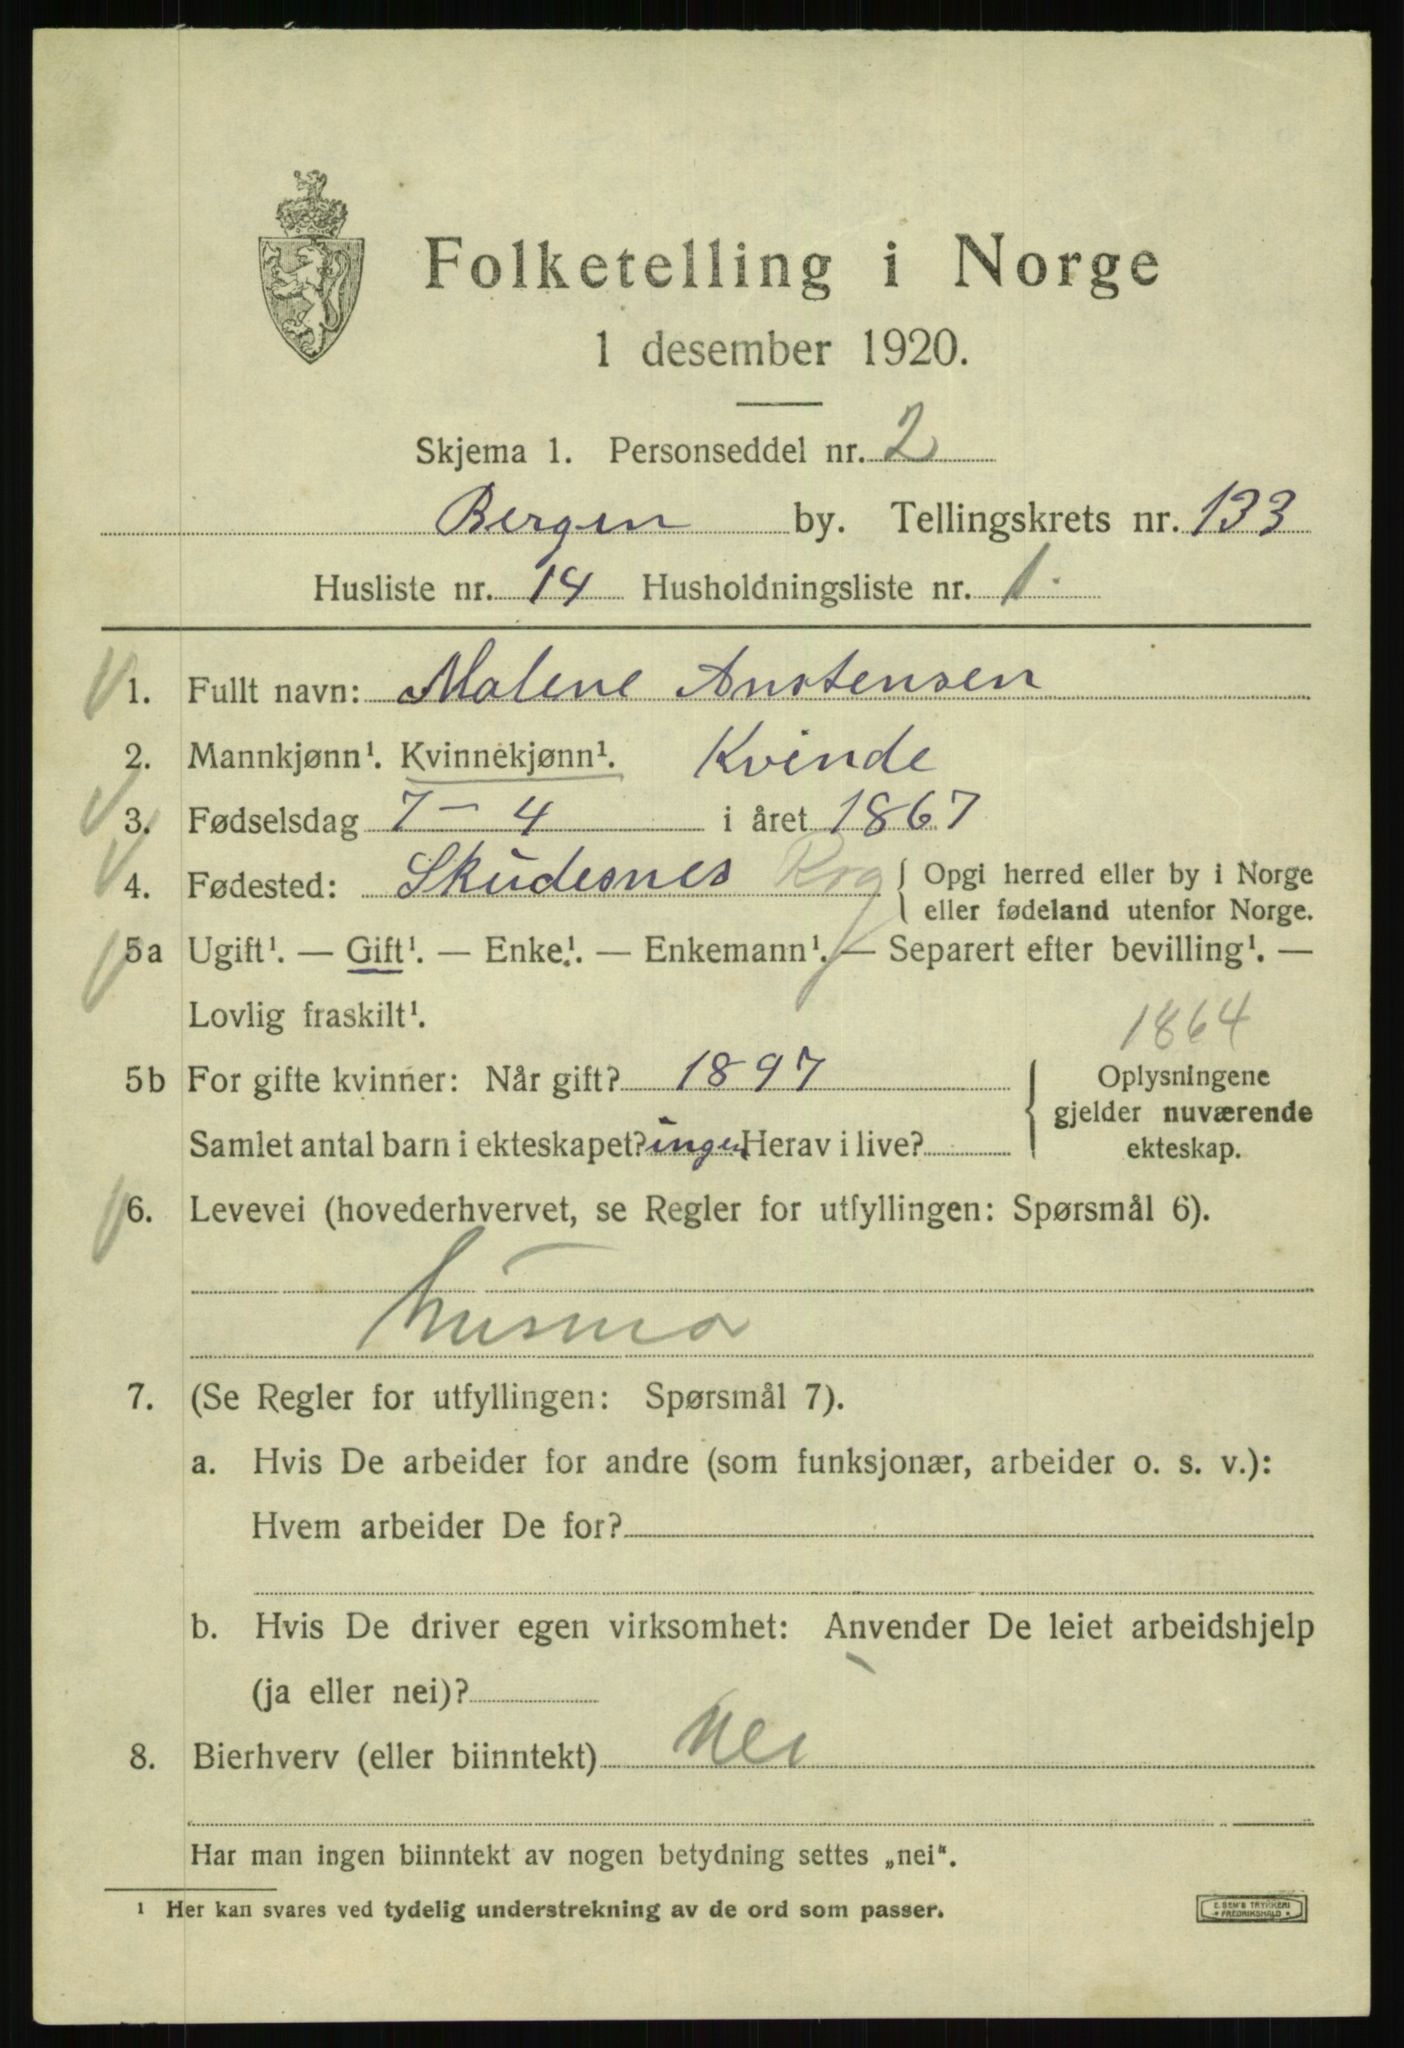 Folketelling i Norge
1 desember 1920.
Skjema 1. Personseddel nr. 2
Bergen by. Tellingskrets nr. 133
Husliste nr. 14 Husholdningsliste nr. 1.
1. Fullt navn: Malene Anstensen
2. Mannkjønn¹. Kvinnekjønn¹. Kvinde
3. Fødselsdag 7 - 4 i året 1867
4. Fødested: Skudesnes Rog { Opgi herred eller by i Norge
eller fødeland utenfor Norge.
5a Ugift¹. — Gift¹. — Enke¹. — Enkemann¹. — Separert efter bevilling¹. —
Lovlig fraskilt¹.
1864
5b For gifte kvinner: Når gift? 1897 { Oplysningene
gjelder nuværende
Samlet antal barn i ekteskapet? ingen Herav i live?
ekteskap.
6. Levevei (hovederhvervet, se Regler for utfyllingen: Spørsmål 6).
husmo
7. (Se Regler for utfyllingen: Spørsmål 7).
a. Hvis De arbeider for andre (som funksjonær, arbeider o. s. v.):
Hvem arbeider De for?
b. Hvis De driver egen virksomhet: Anvender De leiet arbeidshjelp
(ja eller nei)?
8. Bierhverv (eller biinntekt) Nei
Har man ingen biinntekt av nogen betydning settes „nei“.
¹ Her kan svares ved tydelig understrekning av de ord som passer.
E. SEM'S TRYKKERI
FREDRIKSHALD